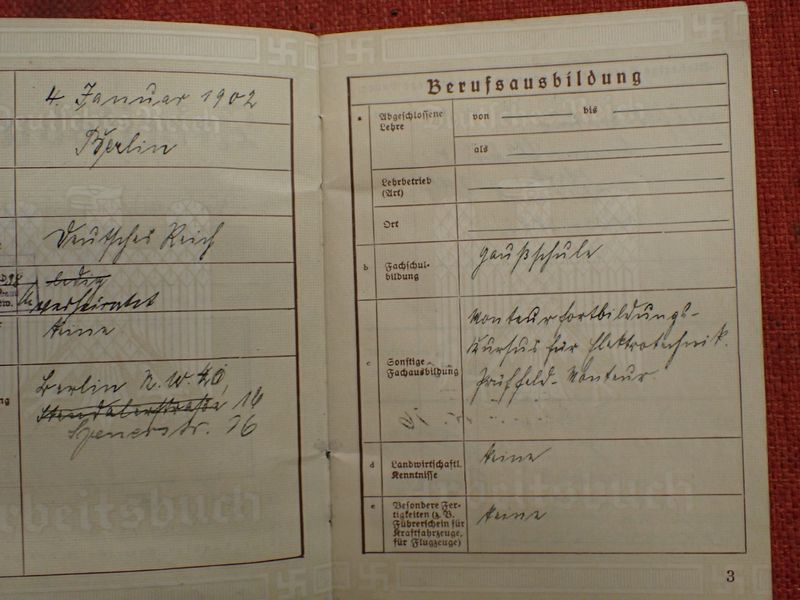 4. Januar 1902
Berlin
Deutsches Reich
ledig
verheiratet
keine
Berlin N.W. 40,
Stendalerstraße 16
Spenerstr. 26
Arbeitsbuch
Berufsausbildung
a Abgeschlossene Lehre
von bis
als
Lehrbetrieb (Art)
Ort
b Fachschulbildung
Gaußschule
c Sonstige Fachausbildung
Monteurfortbildungs-
kursus für Elektrotechnik.
Prüffeld-Monteur.
d Landwirtschaftl. Kenntnisse
keine
e Besondere Fer-
tigkeiten (z. B.
Führerschein für
Kraftfahrzeuge,
für Flugzeuge)
keine
3